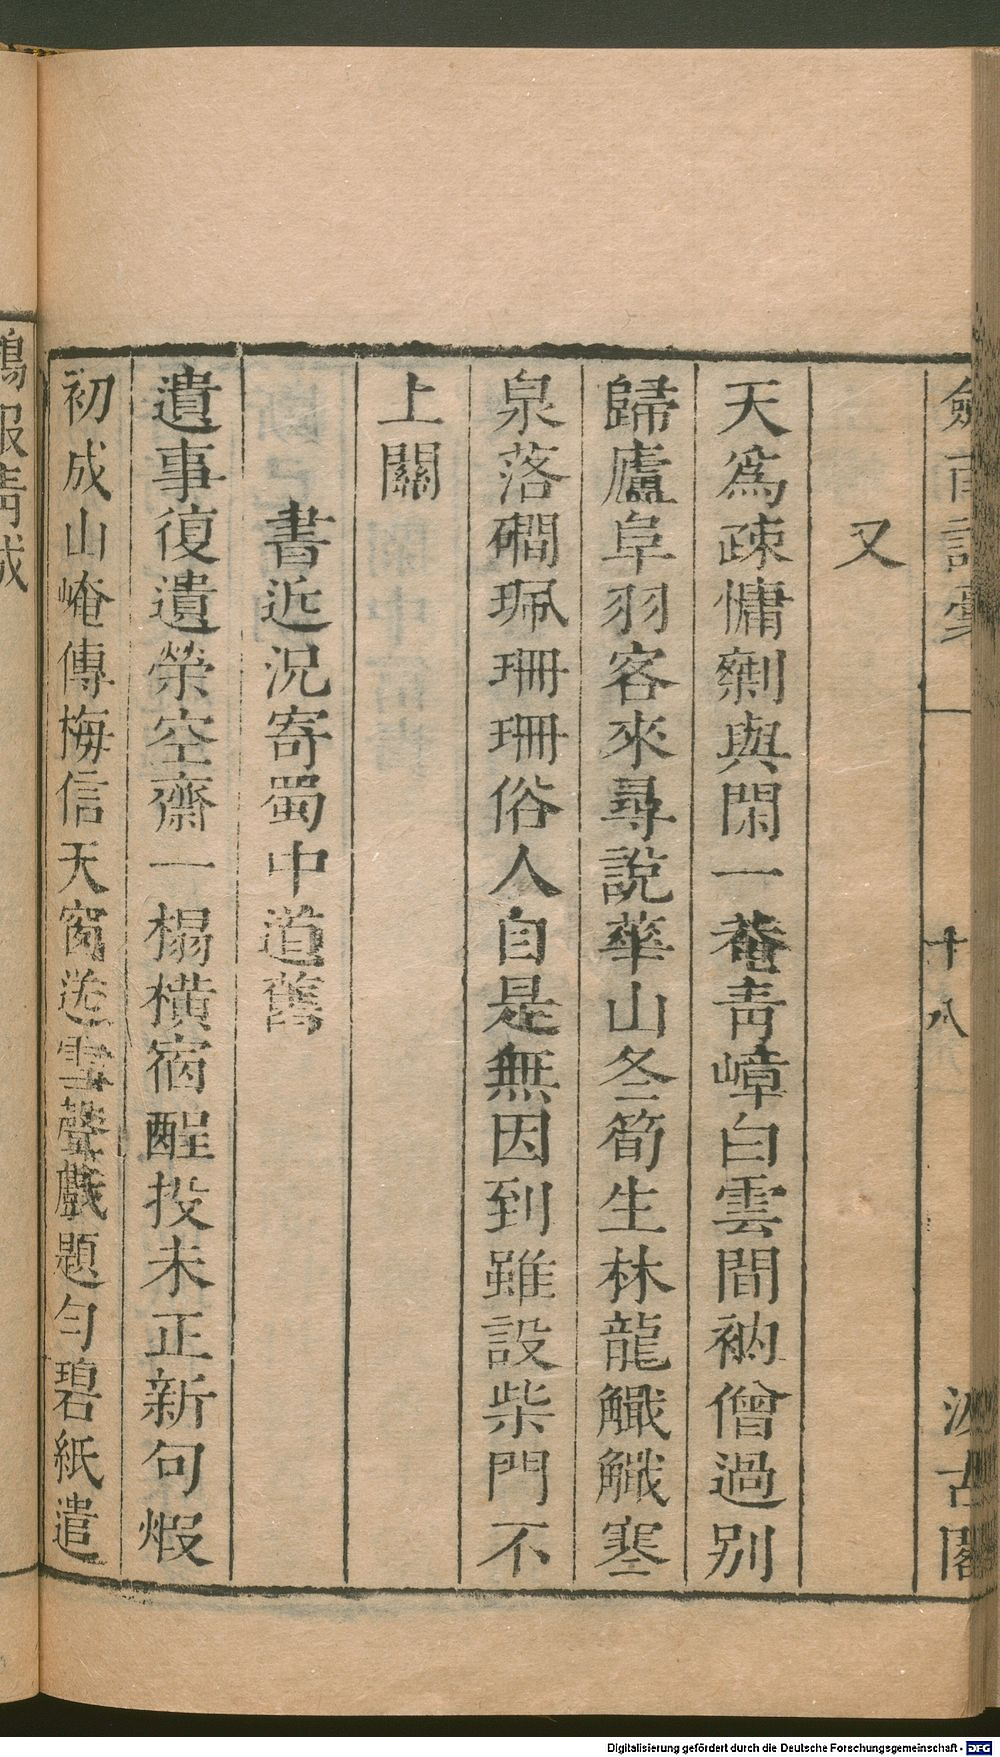 劍南詩稾
十八
汲古閣
又
天爲疎慵剩與閑一菴靑嶂白雲間衲僧過別
歸廬阜羽客來尋說華山冬筍生林龍觵觵塞
泉落磵珮珊珊俗人自是無因到雖設柴門不
上關
書近況寄蜀中道舊
遺事復遺榮空齋一榻橫宿酲投未正新句煆
初成山崦傳梅信天窗送雪聲戲題勻碧紙遣
報靑城
Digitalisierung gefördert durch die Deutsche Forschungsgemeinschaft - DFG